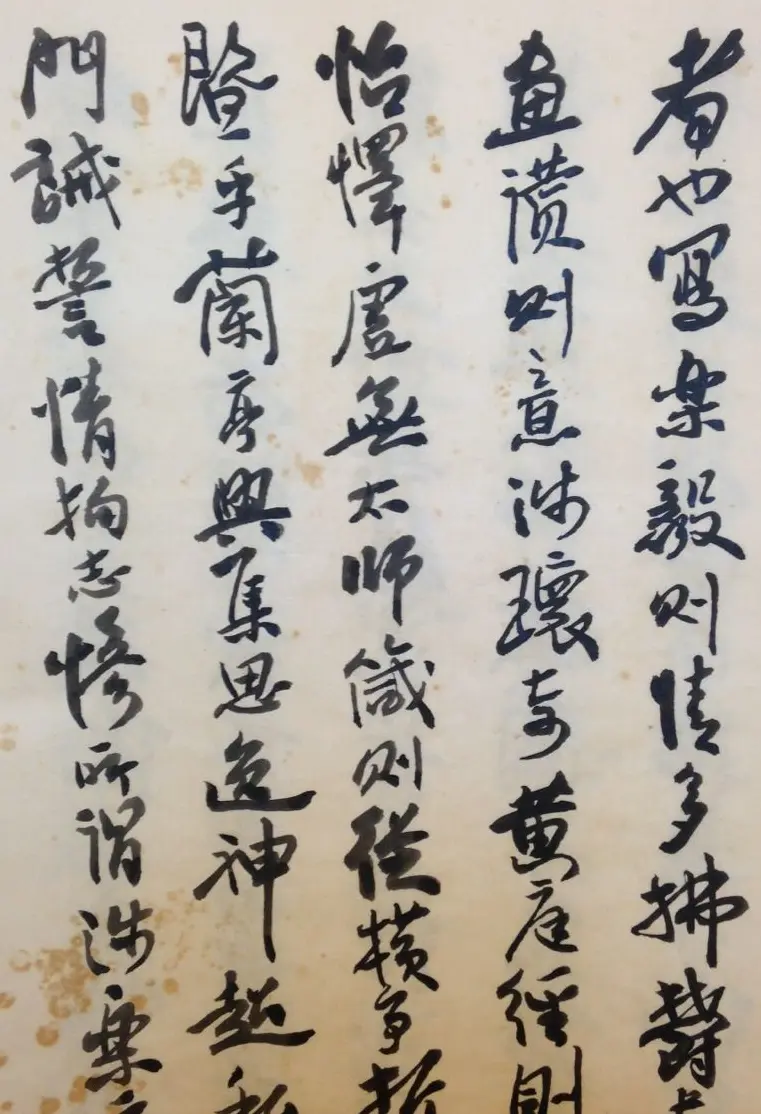 者也寫樂毅則情多怫鬱
畫讚則意涉瓌奇黃庭經則
怡懌虛無太師箴則從橫爭折
暨乎蘭亭興集思逸神超私
門誡誓情拘志慘所謂涉樂